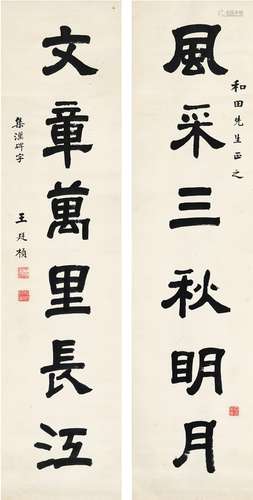 和田先生正之
風采三秋明月
文章萬里長江
集漢碑字
王廷楨